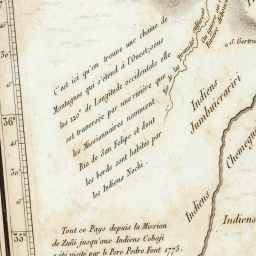 C'est ici qu'on trouve une chaine de
Montagnes qui s'étend à l'Ouest; sous
les 120° de Longitude occidentale elle
est traversée par une rivière que
les Missionnaires nomment
Rio de San Felipe et dont
les bords sont habités par
les Indiens Nochi.
S. Gertru
Indiens
Jumbuicrariri
Chemegue
Indiens
Indiens
36°
35
Tout ce Pays depuis la Mission
de Zuñi jusqu'aux Indiens Cobaji
a été visité par le Pere Pedro Font 1775.